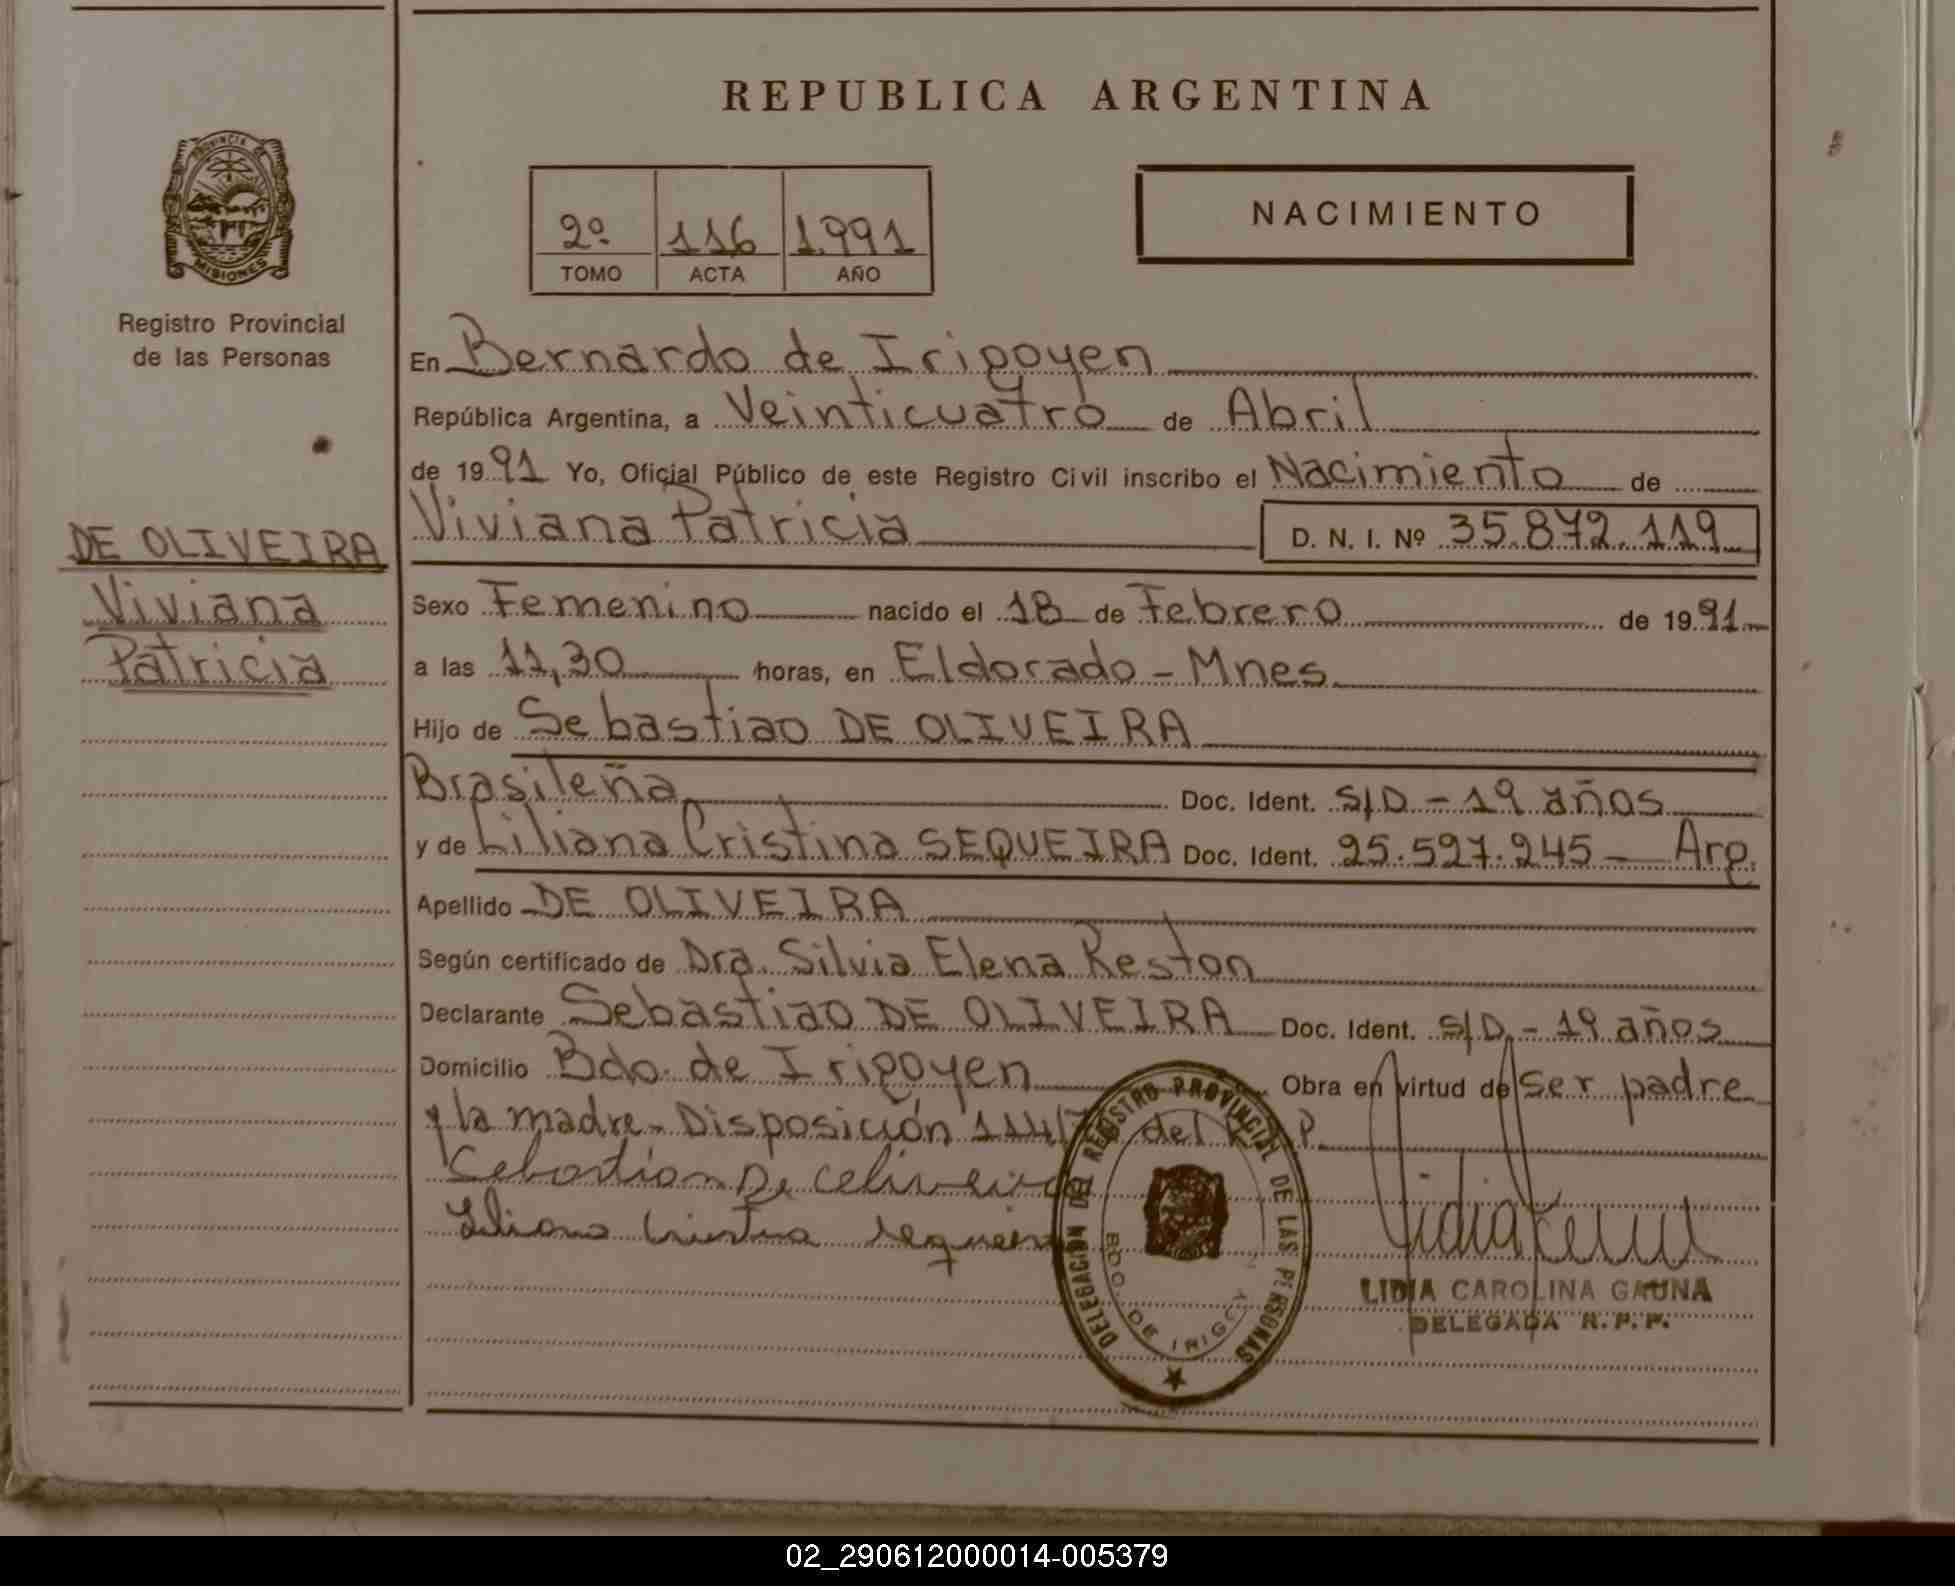 REPUBLICA ARGENTINA
PROVINCIA DE
MISIONES
Registro Provincial
de las Personas
2º 116 1.991
TOMO ACTA AÑO
NACIMIENTO
En Bernardo de Irigoyen
República Argentina, a Veinticuatro de Abril
de 1991 Yo, Oficial Público de este Registro Civil inscribo el Nacimiento de
Viviana Patricia D. N. I. Nº 35.872.119
DE OLIVEIRA
Viviana
Patricia
Sexo Femenino nacido el 18 de Febrero de 1991
a las 11,30 horas, en Eldorado - Mnes.
Hijo de Sebastiao DE OLIVEIRA
Brasileña Doc. Ident. S/D - 19 años
y de Liliana Cristina SEQUEIRA Doc. Ident. 25.527.245 - Arg.
Apellido DE OLIVEIRA
Según certificado de Dra. Silvia Elena Reston
Declarante Sebastiao DE OLIVEIRA Doc. Ident. S/D. - 19 años
Domicilio Bdo. de Irigoyen Obra en virtud de Ser padre
y la madre - Disposición 114/ del P.
Sebastian De Oliveira
Liliana Cristina Sequeira
DELEGACION DEL REGISTRO PROVINCIAL DE LAS PERSONAS
BDO. DE IRIGOY
LIDIA CAROLINA GAUNA
DELEGADA R.P.P.
02_290612000014-005379